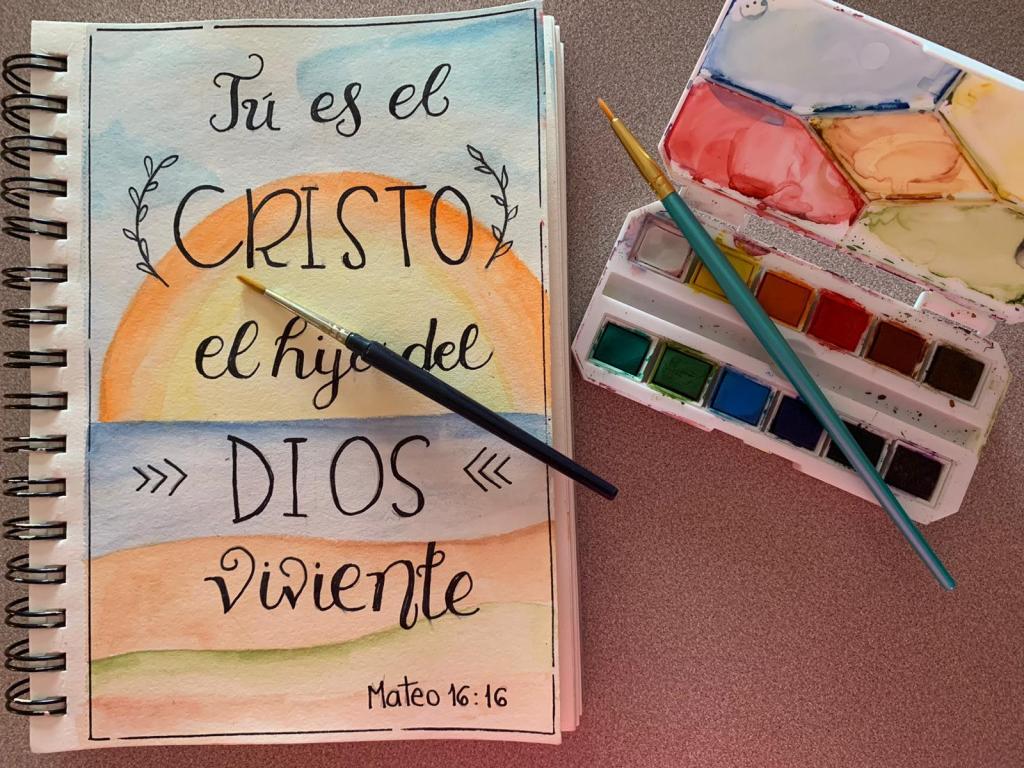 Tú es el
CRISTO
el hijo del
DIOS
viviente
Mateo 16:16